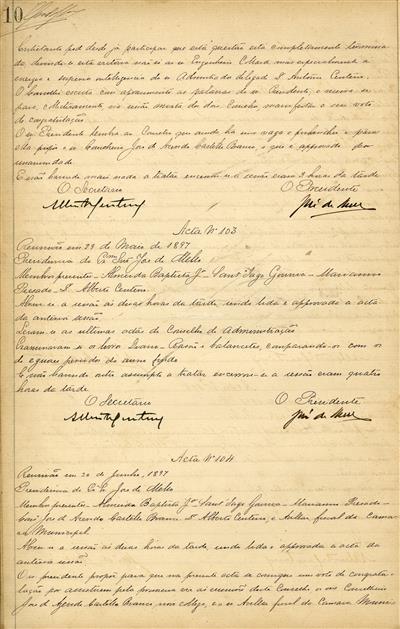 10
Presidente pod desde já participar que está questão está completamente termina-
da, devido a esta victoria não só ao Engenheiro Collard mas especialmente á
energia e superior intelligencia do Administrador delegado S. Antonio Centeno.
O Conselho escuta com aprasimento as palavras do Presidente, e
na acta d'este Conselho manifesta o seu voto
de congratulação.
O Presidente lembra ao Conselho que ainda ha uma vaga a preencher e para
ella propõe o Conselheiro José d'Azevedo Castello Branco, o que é approvado por
unanimidade
E não havendo mais nada a tratar encerrou-se a sessão eram 3 horas da tarde
O Secretario
O Presidente
José de Mello
Acta Nº 103
Reunião em 29 de Maio de 1897
Presidencia do José de Mello
Membros presentes - Almeida Baptista, Jm. Sant'Iago Gouveia - Marianno
Presado - D. Alberto Centeno.
Abriu-se a sessão ás duas horas da tarde, sendo lida e approvada a acta
da anterior sessão.
Leram-se as ultimas actas do Conselho de Administração
Examinaram-se o livro Diario - Razão e balancetes, comparando-os com os
de egual periodo do anno findo
E não havendo outro assumpto a tratar encerrou-se a sessão eram quatro
horas da tarde
O Secretario
O Presidente
José de Mello
Acta Nº 104
Reunião em 20 de Junho, 1897
Presidencia do José de Mello
Membros presentes - Almeida Baptista, Jm. Sant'Iago Gouveia - Marianno Presado -
José d'Azevedo Castello Branco, D. Alberto Centeno, e Auditor fiscal da Cama-
ra Municipal.
Abriu-se a sessão ás duas horas da tarde, sendo lida e approvada a acta da
anterior sessão.
O presidente propõe para que na presente acta se consigne um voto de congratu-
lação por assistirem pela primeira vez ás reuniões deste Conselho o Conselheiro
José d'Azevedo Castello Branco, nosso collega, e o Auditor fiscal da Camara Munici-